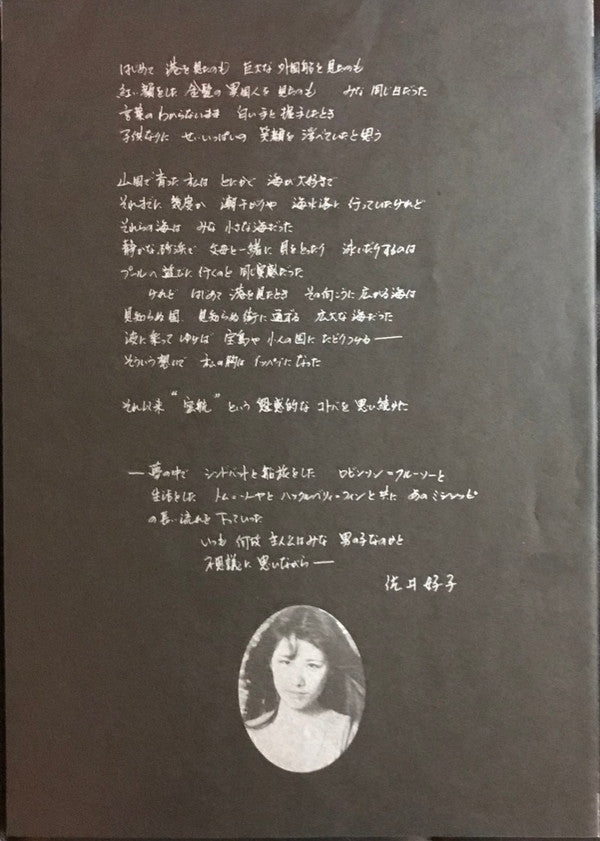 はじめて 港を見たのも 巨大な 外国船を見たのも
紅い顔をした 金髪の異国人を 見たのも みな 同じ日だった
言葉の わからないまま 白い手と 握手したとき
子供なりに せいいっぱいの 笑顔を 浮べていたと思う
山国で育った私は とにかく 海が大好きで
それまでに 幾度か 潮干がりや 海水浴に 行っていたけれど
それらの海は みな 小さな海だった
静かな砂浜で 父母と一緒に 貝をとったり 泳いだりするのは
プールへ 遊びに 行くのと 同じ実感だった
けれど はじめて 港を見たとき その向こうに 広がる海は
見知らぬ国 見知らぬ街に 通ずる 広大な 海だった
波に乗って ゆけば 宝島や 小人の国に たどりつける——
そういう想いで 私の胸は イッパイに なった
それ以来 “密航” という 魅惑的な コトバを 思い続けた
——夢の中で シンドバットと船旅をした ロビンソン=クルーソーと
生活をした トム=ソーヤと ハックルベリィ=フィンと共に あの ミシシッピ
の長い流れを 下っていった
いつも 何故 主人公はみな 男の子なのかと
不思議に 思いながら——
佐井好子